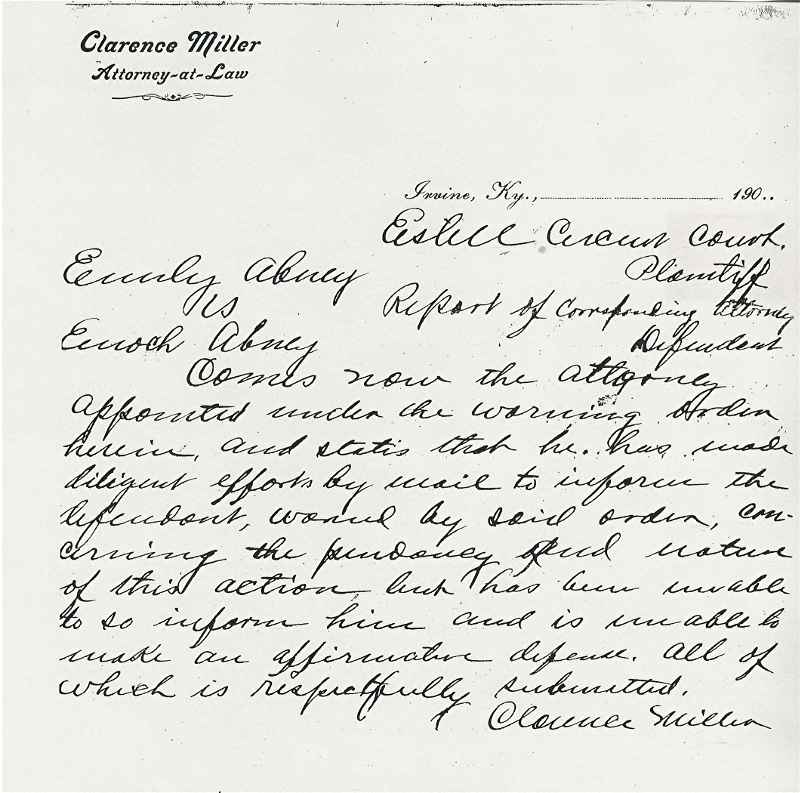 Clarence Miller
Attorney-at-Law
Irvine, Ky., 190..
Estill Circuit Court.
Emily Abney Plaintiff
vs Report of Corresponding Attorney
Enoch Abney Defendent
Comes now the attorney
appointed under the warning order
herein, and states that he. has made
diligent efforts by mail to inform the
defendant, warned by said order, con-
cerning the pendency and nature
of this action, but has been unable
to so inform him and is unable to
make an affirmative defense. All of
which is respectfully submitted.
Clarence Miller